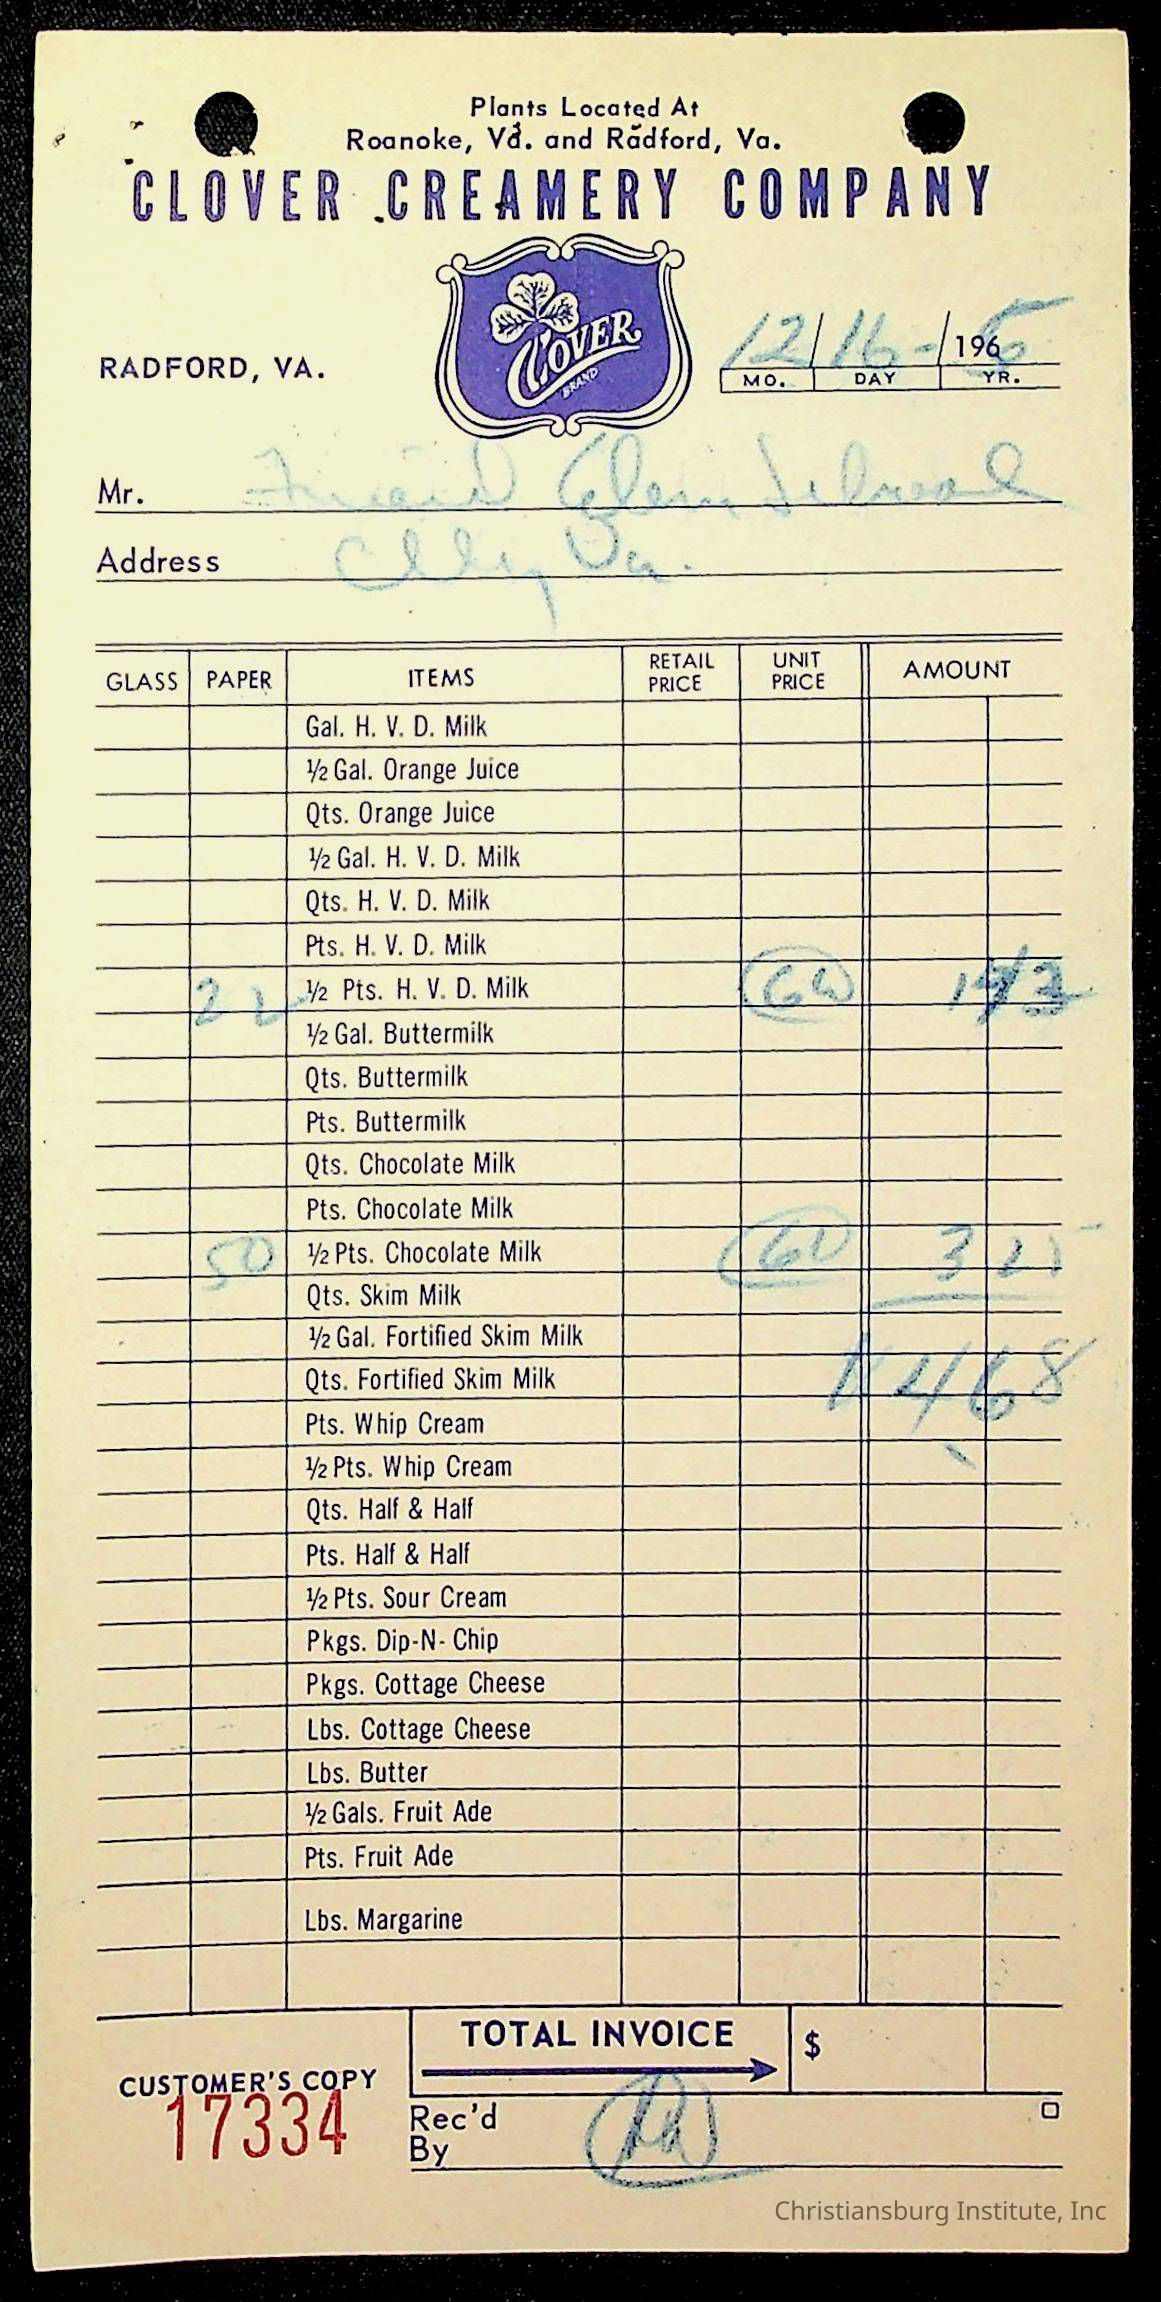 Plants Located At
Roanoke, Va. and Radford, Va.
CLOVER CREAMERY COMPANY
CLOVER
BRAND
RADFORD, VA.
12/16-/1965
MO. DAY YR.
Mr. Friend Elem School
Address Va.
GLASS PAPER ITEMS RETAIL PRICE UNIT PRICE AMOUNT
Gal. H. V. D. Milk
½ Gal. Orange Juice
Qts. Orange Juice
½ Gal. H. V. D. Milk
Qts. H. V. D. Milk
Pts. H. V. D. Milk
22 ½ Pts. H. V. D. Milk
½ Gal. Buttermilk
Qts. Buttermilk
Pts. Buttermilk
Qts. Chocolate Milk
Pts. Chocolate Milk
50 ½ Pts. Chocolate Milk 3 25
Qts. Skim Milk
½ Gal. Fortified Skim Milk
Qts. Fortified Skim Milk 4 68
Pts. Whip Cream
½ Pts. Whip Cream
Qts. Half & Half
Pts. Half & Half
½ Pts. Sour Cream
Pkgs. Dip-N-Chip
Pkgs. Cottage Cheese
Lbs. Cottage Cheese
Lbs. Butter
½ Gals. Fruit Ade
Pts. Fruit Ade
Lbs. Margarine
TOTAL INVOICE $
CUSTOMER'S COPY
17334
Rec'd
By
Christiansburg Institute, Inc